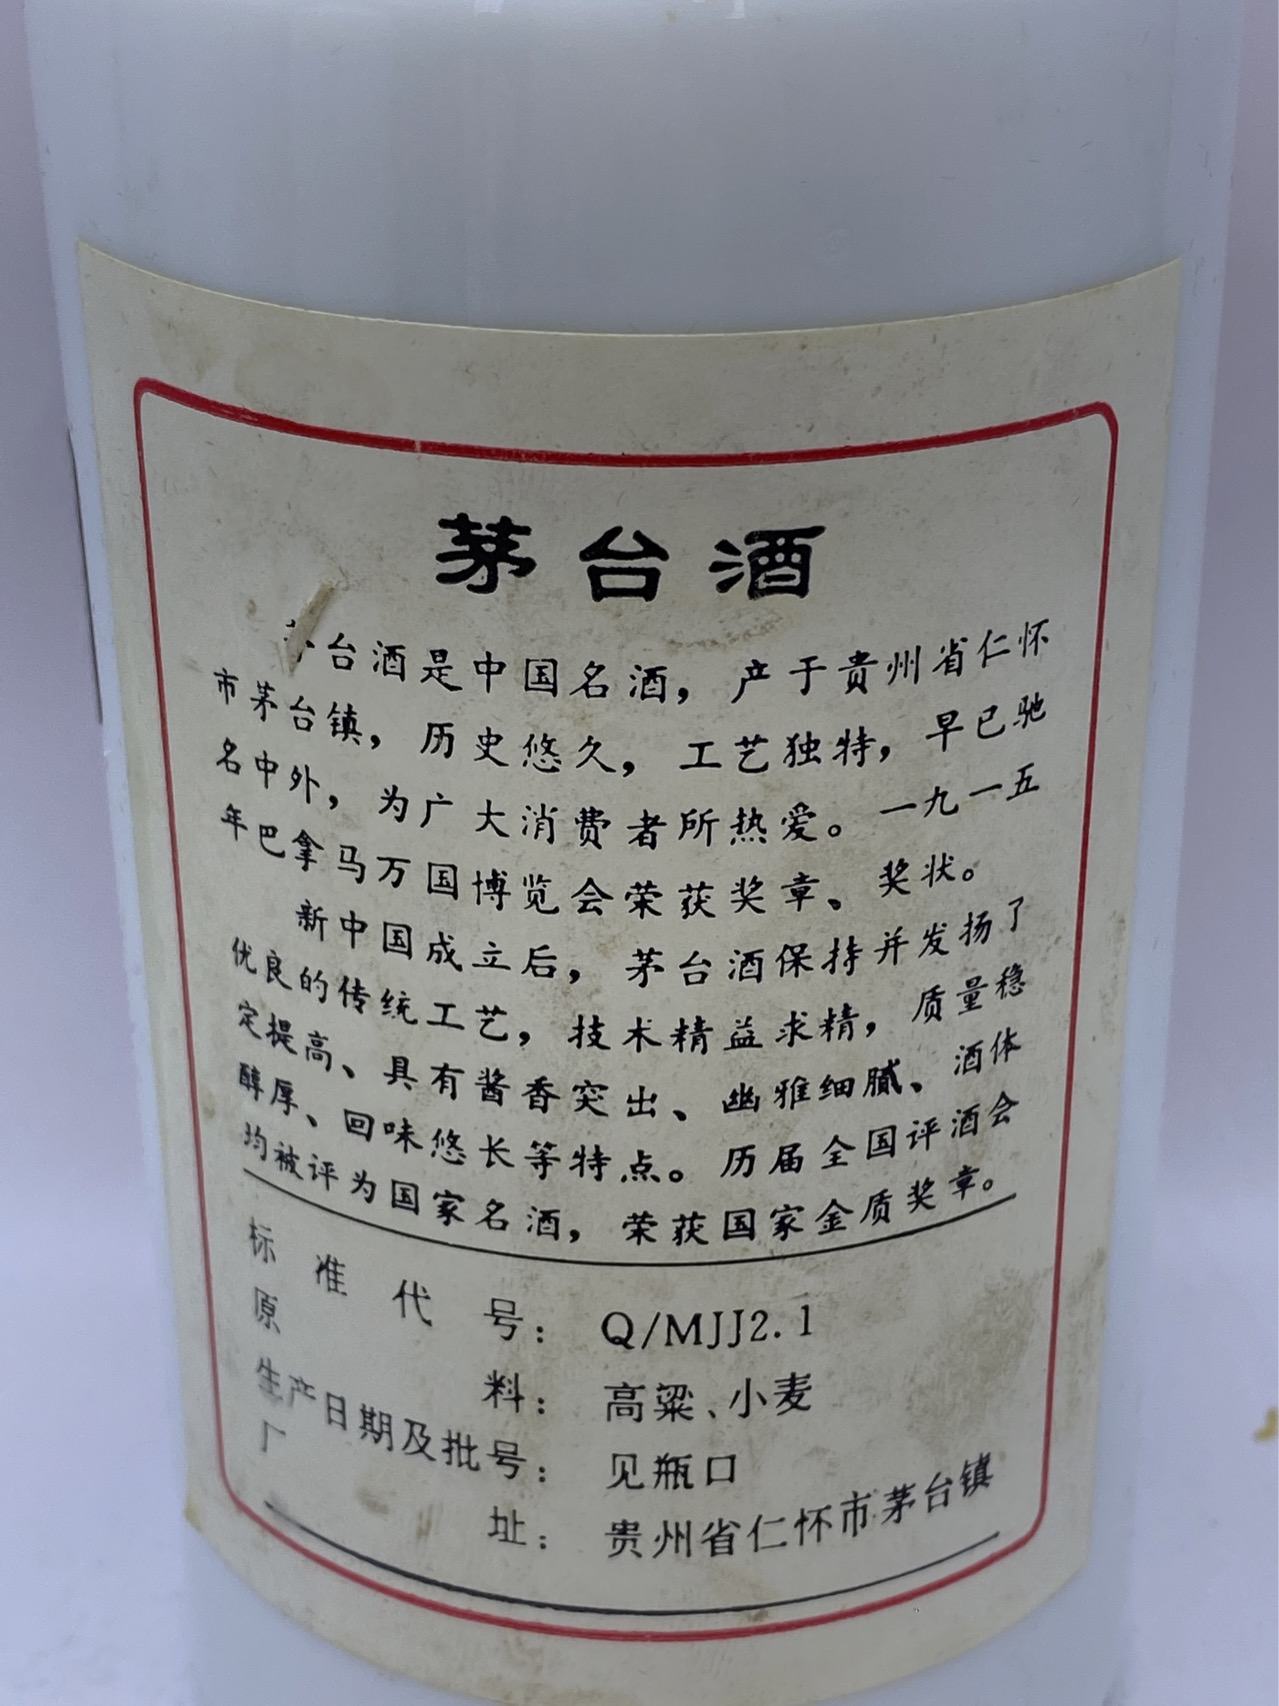 茅台酒
台酒是中国名酒，产于贵州省仁怀
市茅台镇，历史悠久，工艺独特，早已驰
名中外，为广大消费者所热爱。一九一五
年巴拿马万国博览会荣获奖章、奖状。
新中国成立后，茅台酒保持并发扬了
优良的传统工艺，技术精益求精，质量稳
定提高、具有酱香突出、幽雅细腻、酒体
醇厚、回味悠长等特点。历届全国评酒会
均被评为国家名酒，荣获国家金质奖章。
标准代号：Q/MJJ2.1
原料：高粱、小麦
生产日期及批号：见瓶口
厂址：贵州省仁怀市茅台镇